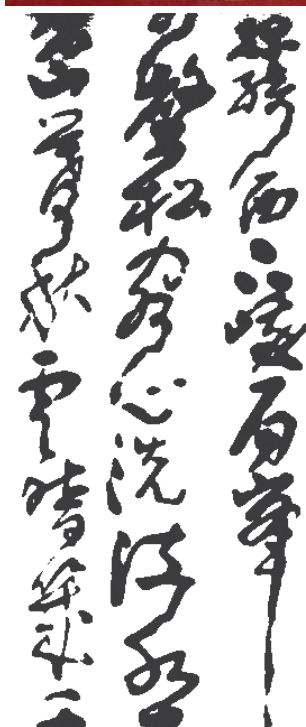 綺西下峨眉峯
壑松客心洗流水
山暮秋雲暗幾